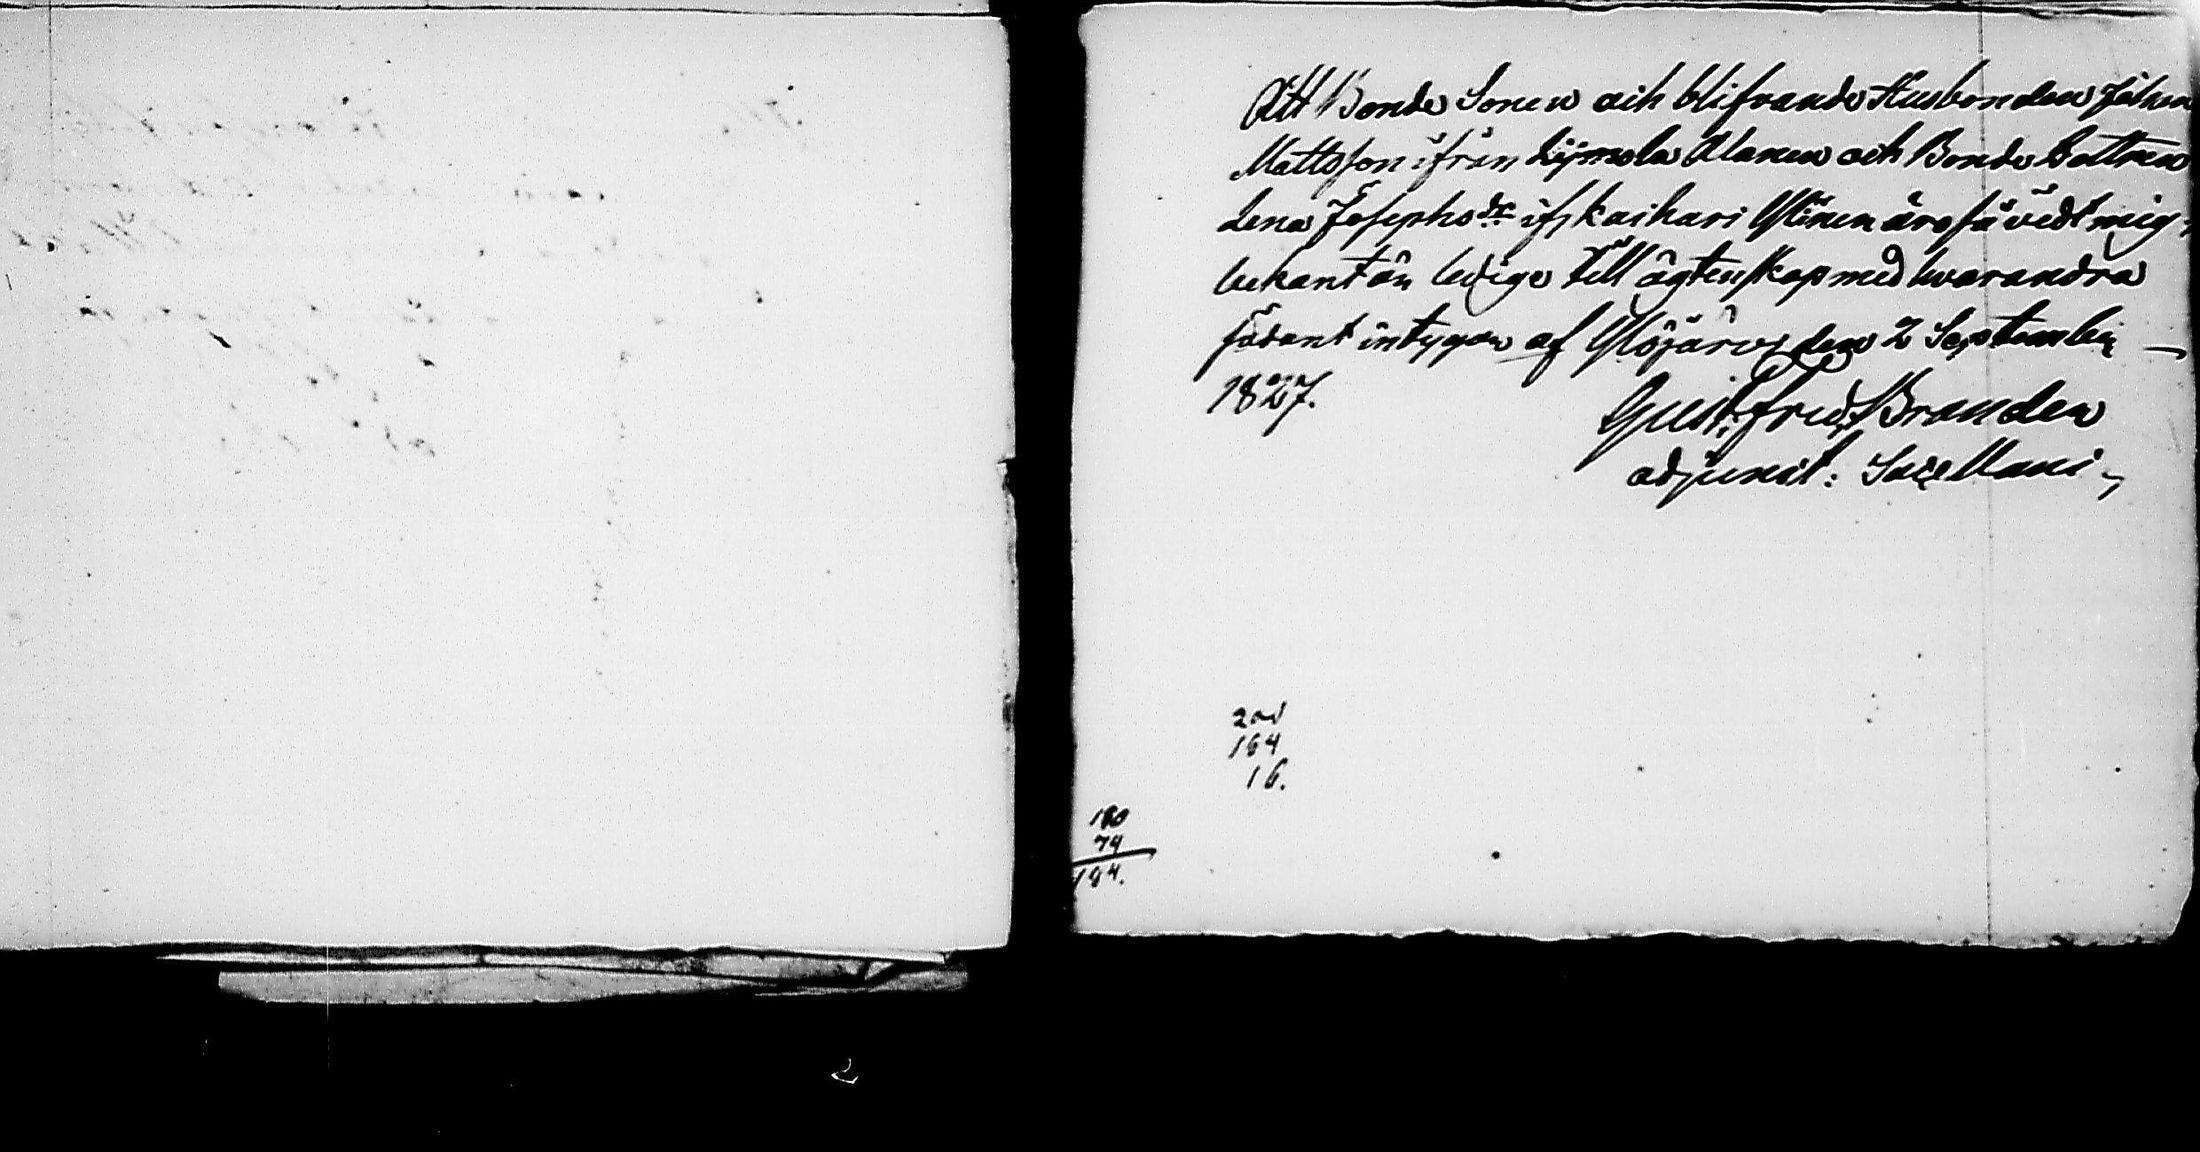 Att Bonde Sonen och blifvande Husbonden Johan
Mattsson ifrån Kijmola Alanen och Bonde Dottren
Lena Josephsdr ifr Kaihari Ylinen äro så vidt mig
bekant än ledige till ägtenskap med hvarandra
sådant intygar af Ylöjärvi den 2 September
1827.
Gust: Fred: Branden
adjunct: Sacellani
164
16.
180
74
184.
2